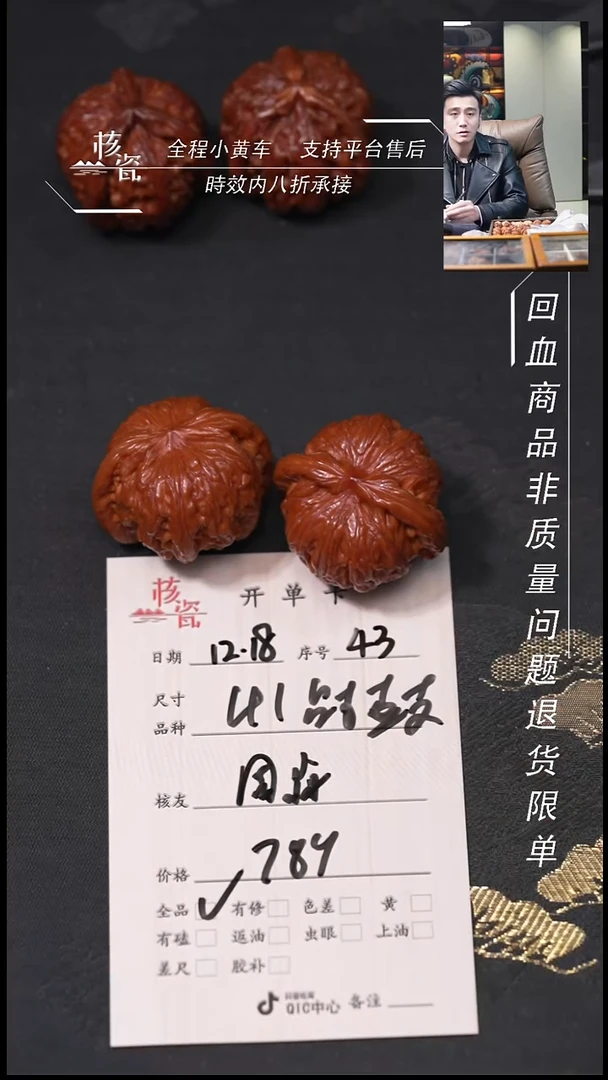 核瓷
全程小黄车 支持平台售后
時效内八折承接
回血商品非质量问题退货限单
核瓷
开单卡
日期 12.18 序号 43
尺寸 41
品种
核友
价格 789
全品 ✓ 有修 色差 黄
有磕 返油 虫眼 上油
差尺 胶补
QIC中心 备注